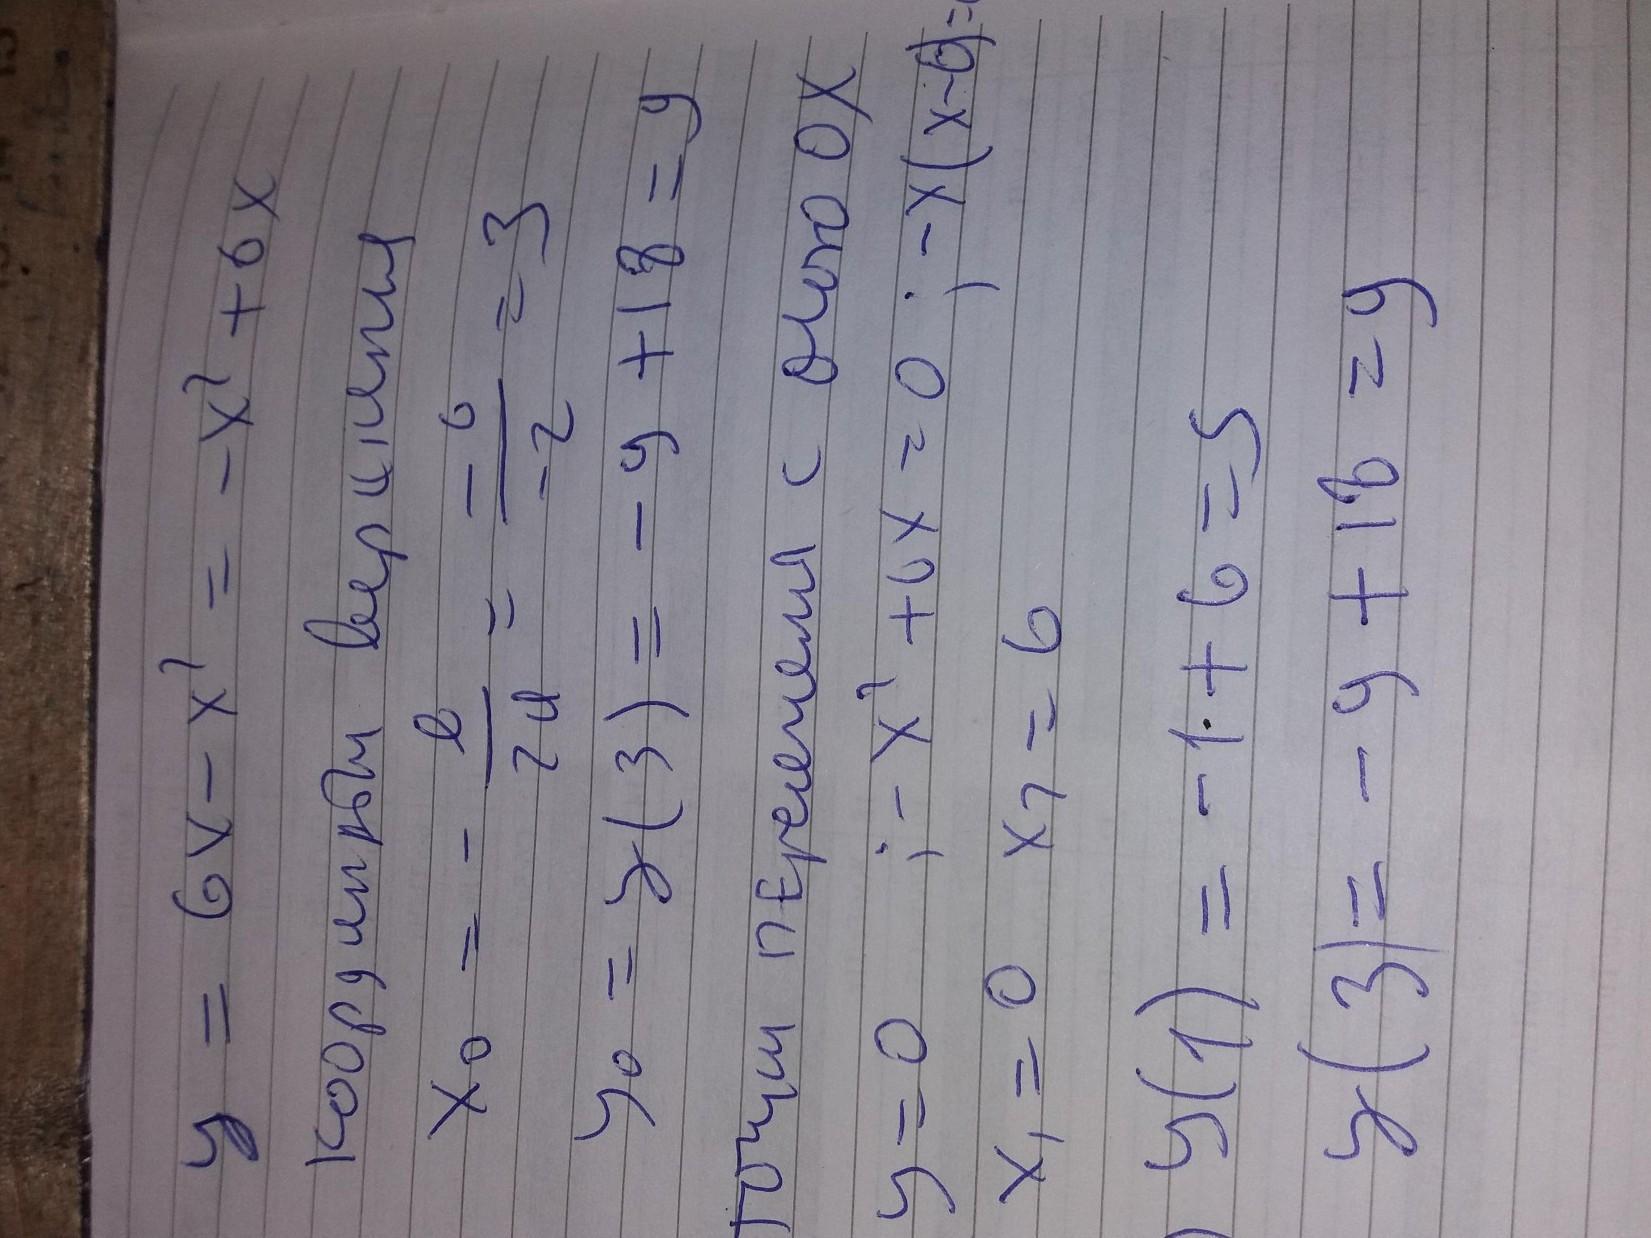 y = 6x - x² = -x² + 6x
Координаты вершины
x₀ = - b/2a = -6/-2 = 3
y₀ = y(3) = -9 + 18 = 9
Точки пересечения с осью OX
y = 0 ; -x² + 6x = 0 ; -x(x-6)=
x₁ = 0 x₂ = 6
) y(1) = -1 + 6 = 5
y(3) = -9 + 18 = 9